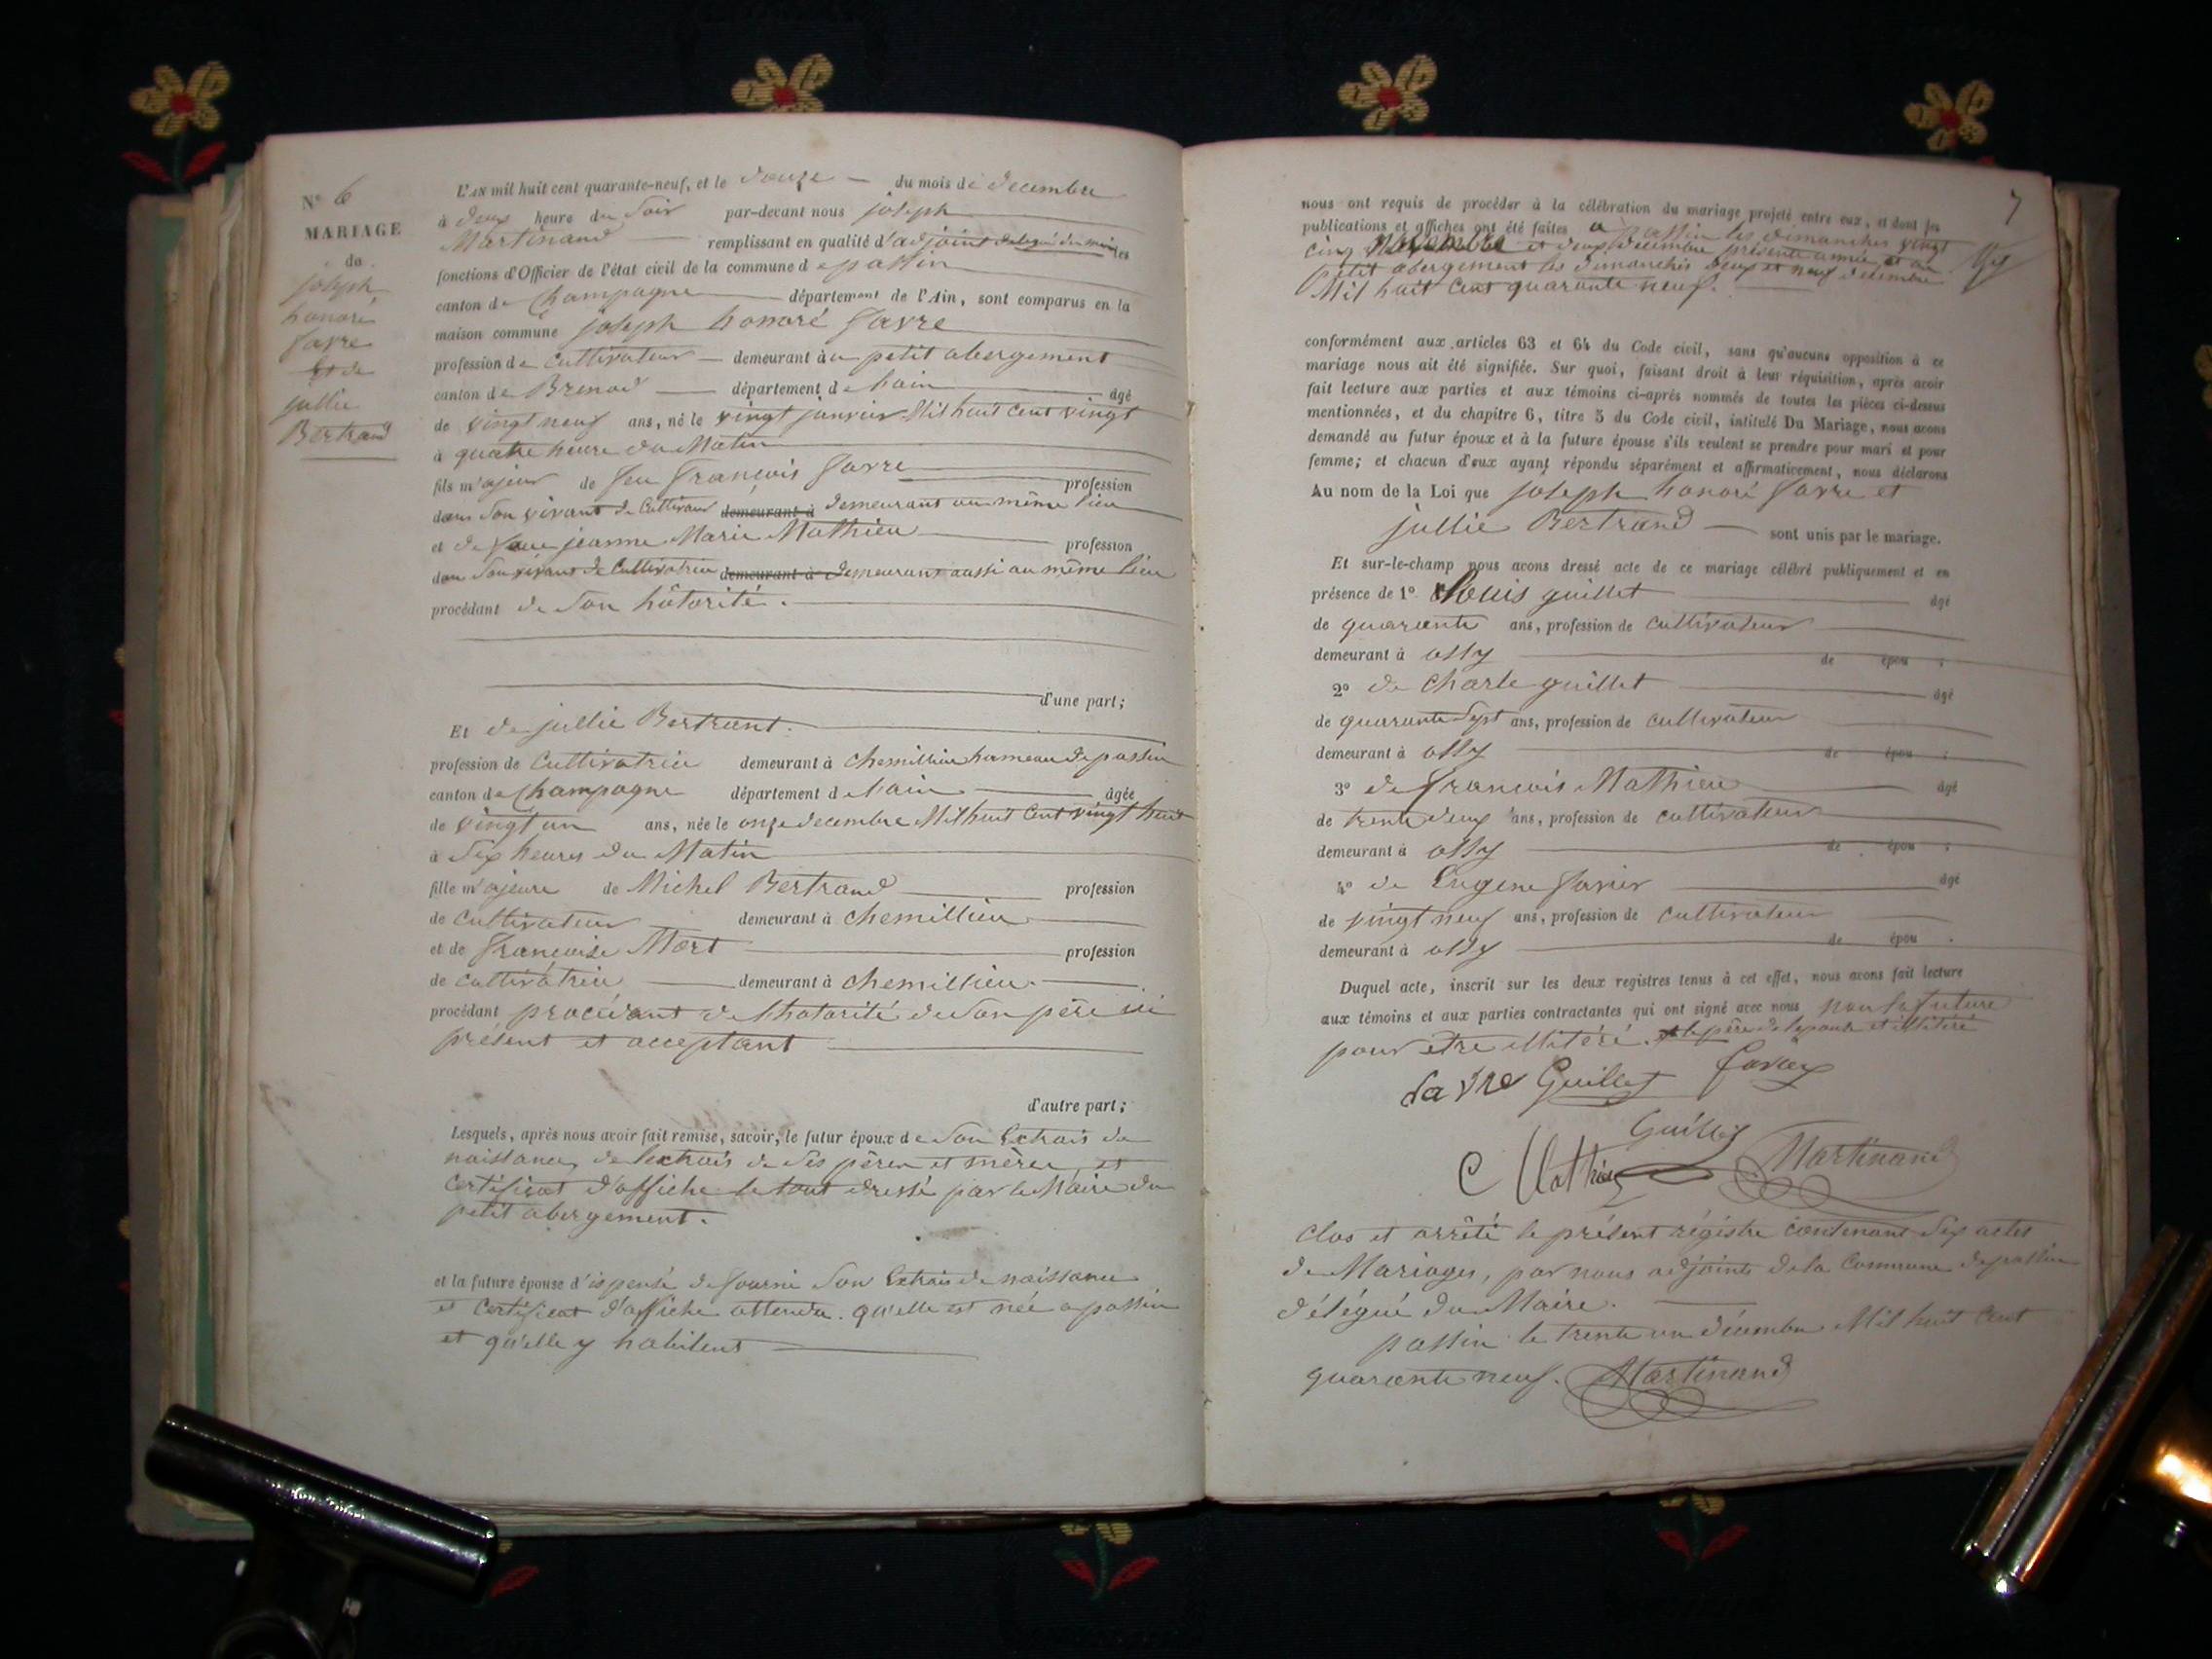 N° 6
MARIAGE
du
joseph
honoré
Savre
Et de
jullie
Bertrand
L'AN mil huit cent quarante-neuf, et le douze du mois de decembre
à deux heure du Soir par-devant nous joseph
Martinand remplissant en qualité d'adjoint délégué du maire les
fonctions d'Officier de l'état civil de la commune de passin
canton de Champagne département de l'Ain, sont comparus en la
maison commune joseph honoré Savre
profession de Cultivateur demeurant à au petit abergement
canton de Brenod département de lain âgé
de vingt neuf ans, né le vingt janvier Mil huit Cent vingt
à quatre heure du Matin
fils majeur de feu françois Savre profession
dans Son vivant de Cultivateur demeurant à demeurant au même lieu
et de feue jeanne Marie Mathieu profession
dans Son vivant de Cultivatrice demeurant à demeurant aussi au même lieu
procédant de Son hôtorité.
d'une part;
Et de jullie Bertrant.
profession de Cultivatrice demeurant à chemillieu hameau de passin
canton de Champagne département de lain âgée
de vingt un ans, née le onze decembre Mil huit Cent vingt huit
à Six heures du Matin
fille majeure de Michel Bertrand profession
de Cultivateur demeurant à chemillieu
et de françoise Mort profession
de Cultivatrice demeurant à chemillieu.
procédant procédant de lhotorité de Son père ici
présent et acceptant
d'autre part;
Lesquels, après nous avoir fait remise, savoir, le futur époux de Son Extrais de
naissance, de lextrais de Ses pères et mères, et
Certificat d'affiche le tout dressé par le Maire du
petit abergement.
et la future épouse d'ispensé de fourni Son Extrais de naissance
et Certificat d'affiche attendu. qu'elle est née a passin
et qu'elle y habitent
7
nous ont requis de procéder à la célébration du mariage projeté entre eux, et dont les
publications et affiches ont été faites a passin les dimanches vingt
cinq novembre et deux decembre présente année et au
petit abergement les dimanches deux et neuf decembre
Mil huit Cent quarante neuf.
conformément aux articles 63 et 64 du Code civil, sans qu'aucune opposition à ce
mariage nous ait été signifiée. Sur quoi, faisant droit à leur réquisition, après avoir
fait lecture aux parties et aux témoins ci-après nommés de toutes les pièces ci-dessus
mentionnées, et du chapitre 6, titre 5 du Code civil, intitulé Du Mariage, nous avons
demandé au futur époux et à la future épouse s'ils veulent se prendre pour mari et pour
femme; et chacun d'eux ayant répondu séparément et affirmativement, nous déclarons
Au nom de la Loi que joseph honoré Savre et
jullie Bertrand sont unis par le mariage.
Et sur-le-champ nous avons dressé acte de ce mariage célébré publiquement et en
présence de 1° Louis guillet âgé
de quarante ans, profession de Cultivateur
demeurant à ossy de épou ;
2° de Charle guillet âgé
de quarante Sept ans, profession de cultivateur
demeurant à ossy de épou ;
3° de françois Mathieu âgé
de trente deux ans, profession de cultivateur
demeurant à ossy de épou ;
4° de Eugene Savier âgé
de vingt neuf ans, profession de cultivateur
demeurant à ossy de épou .
Duquel acte, inscrit sur les deux registres tenus à cet effet, nous avons fait lecture
aux témoins et aux parties contractantes qui ont signé avec nous non la future
pour être illitéré. et le père de lepouse et illitéré
Savre Guillet
Guillet
C Mathieu Martinand
Clos et arrêté le présent régistre contenant Six actes
de Mariages, par nous adjoints de la Commune de passin
délégué du Maire.
passin le trente un décembre Mil huit Cent
quarante neuf. Martinand